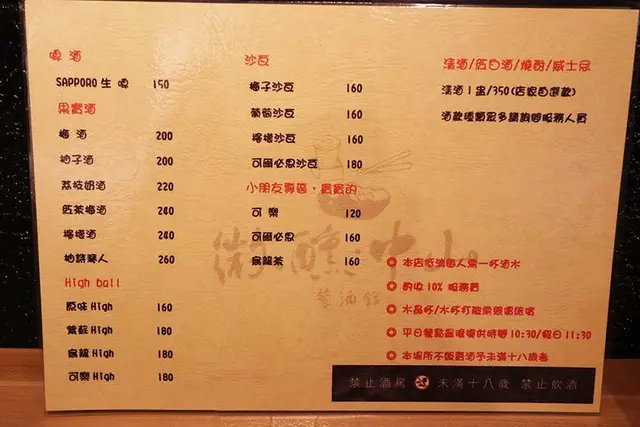 啤 酒
SAPPORO 生 啤 150
果實酒
梅 酒 200
柚子酒 200
荔枝奶酒 220
茶梅酒 240
檸檬酒 240
260
High ball
原味High 160
紫蘇High 180
烏龍High 180
可樂High 180
沙瓦
梅子沙瓦 160
葡萄沙瓦 160
檸檬沙瓦 160
可爾必思沙瓦 180
小朋友專區，貴貴的
可 樂 120
可爾必思 160
烏龍茶 160
微醺中山
餐酒館
清酒/白酒/燒酎/威士忌
清酒 1 盅/350(店家自選款)
酒款種類眾多請詢問服務人員
◎ 本店低消每人需一杯酒水
◎ 酌收 10% 服務費
◎ 水晶杯/水杯打破需照價賠償
◎ 平日餐點最後供時間 10:30/假日 11:30
◎ 本場所不販賣酒予未滿十八歲者
禁止酒駕 未滿十八歲 禁止飲酒